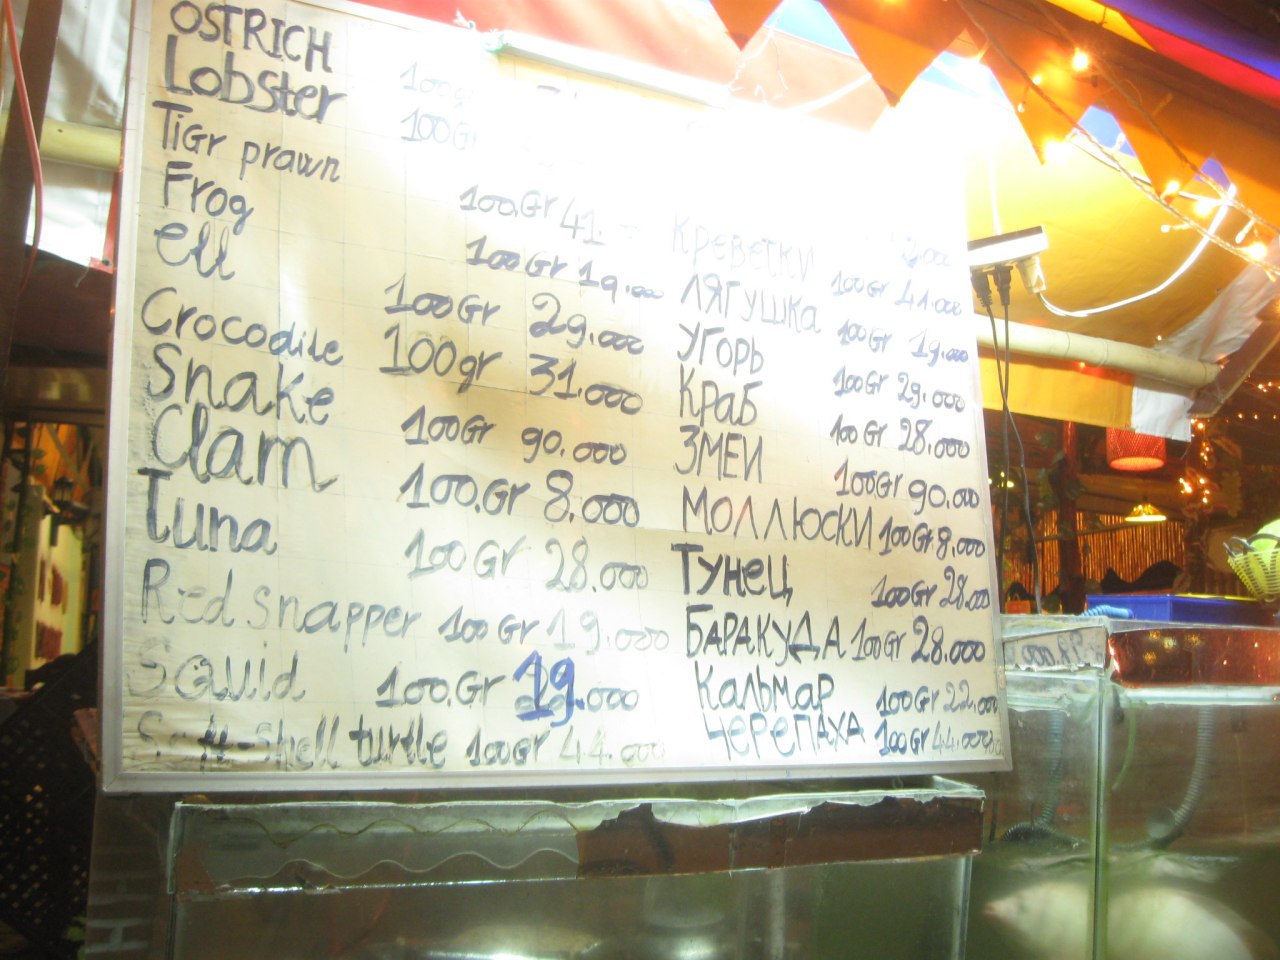 OSTRICH 100g
Lobster 100Gr
Tigr prawn
Frog 100.Gr 41. Креветки
Ell 100Gr 19.000 ЛЯГУШКА 100Gr 41.000
Crocodile 100Gr 29.000 УГОРЬ 100Gr 19.000
Snake 100gr 31.000 КРАБ 100Gr 29.000
Clam 100Gr 90.000 ЗМЕИ 100Gr 28.000
Tuna 100.Gr 8.000 МОЛЛЮСКИ 100Gr 90.000
Red snapper 100Gr 28.000 ТУНЕЦ 100Gr 8.000
Squid 100Gr 19.000 БАРАКУДА 100Gr 28.000
Soft-Shell turtle 100.Gr 19.000 Кальмар 100Gr 28.000
100gr 44.000 ЧЕРЕПАХА 100Gr 22.000
100gr 44.000